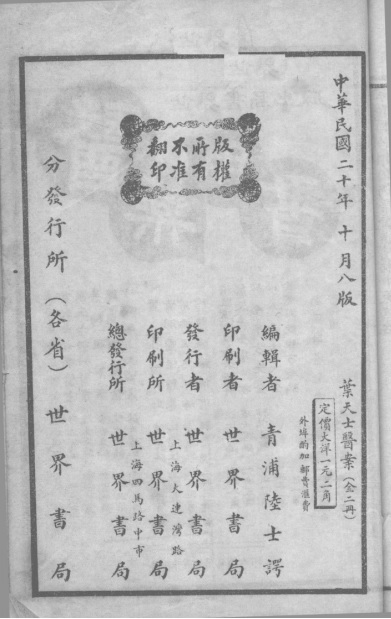 中華民國二十年十月八版
葉天士醫案（全二冊）
定價大洋一元二角
外埠酌加郵費滙費
版權所有不准翻印
編輯者　青浦陸士諤
印刷者　世界書局
發行者　世界書局
上海大連灣路
印刷所　世界書局
上海四馬路中市
總發行所　世界書局
分發行所（各省）世界書局